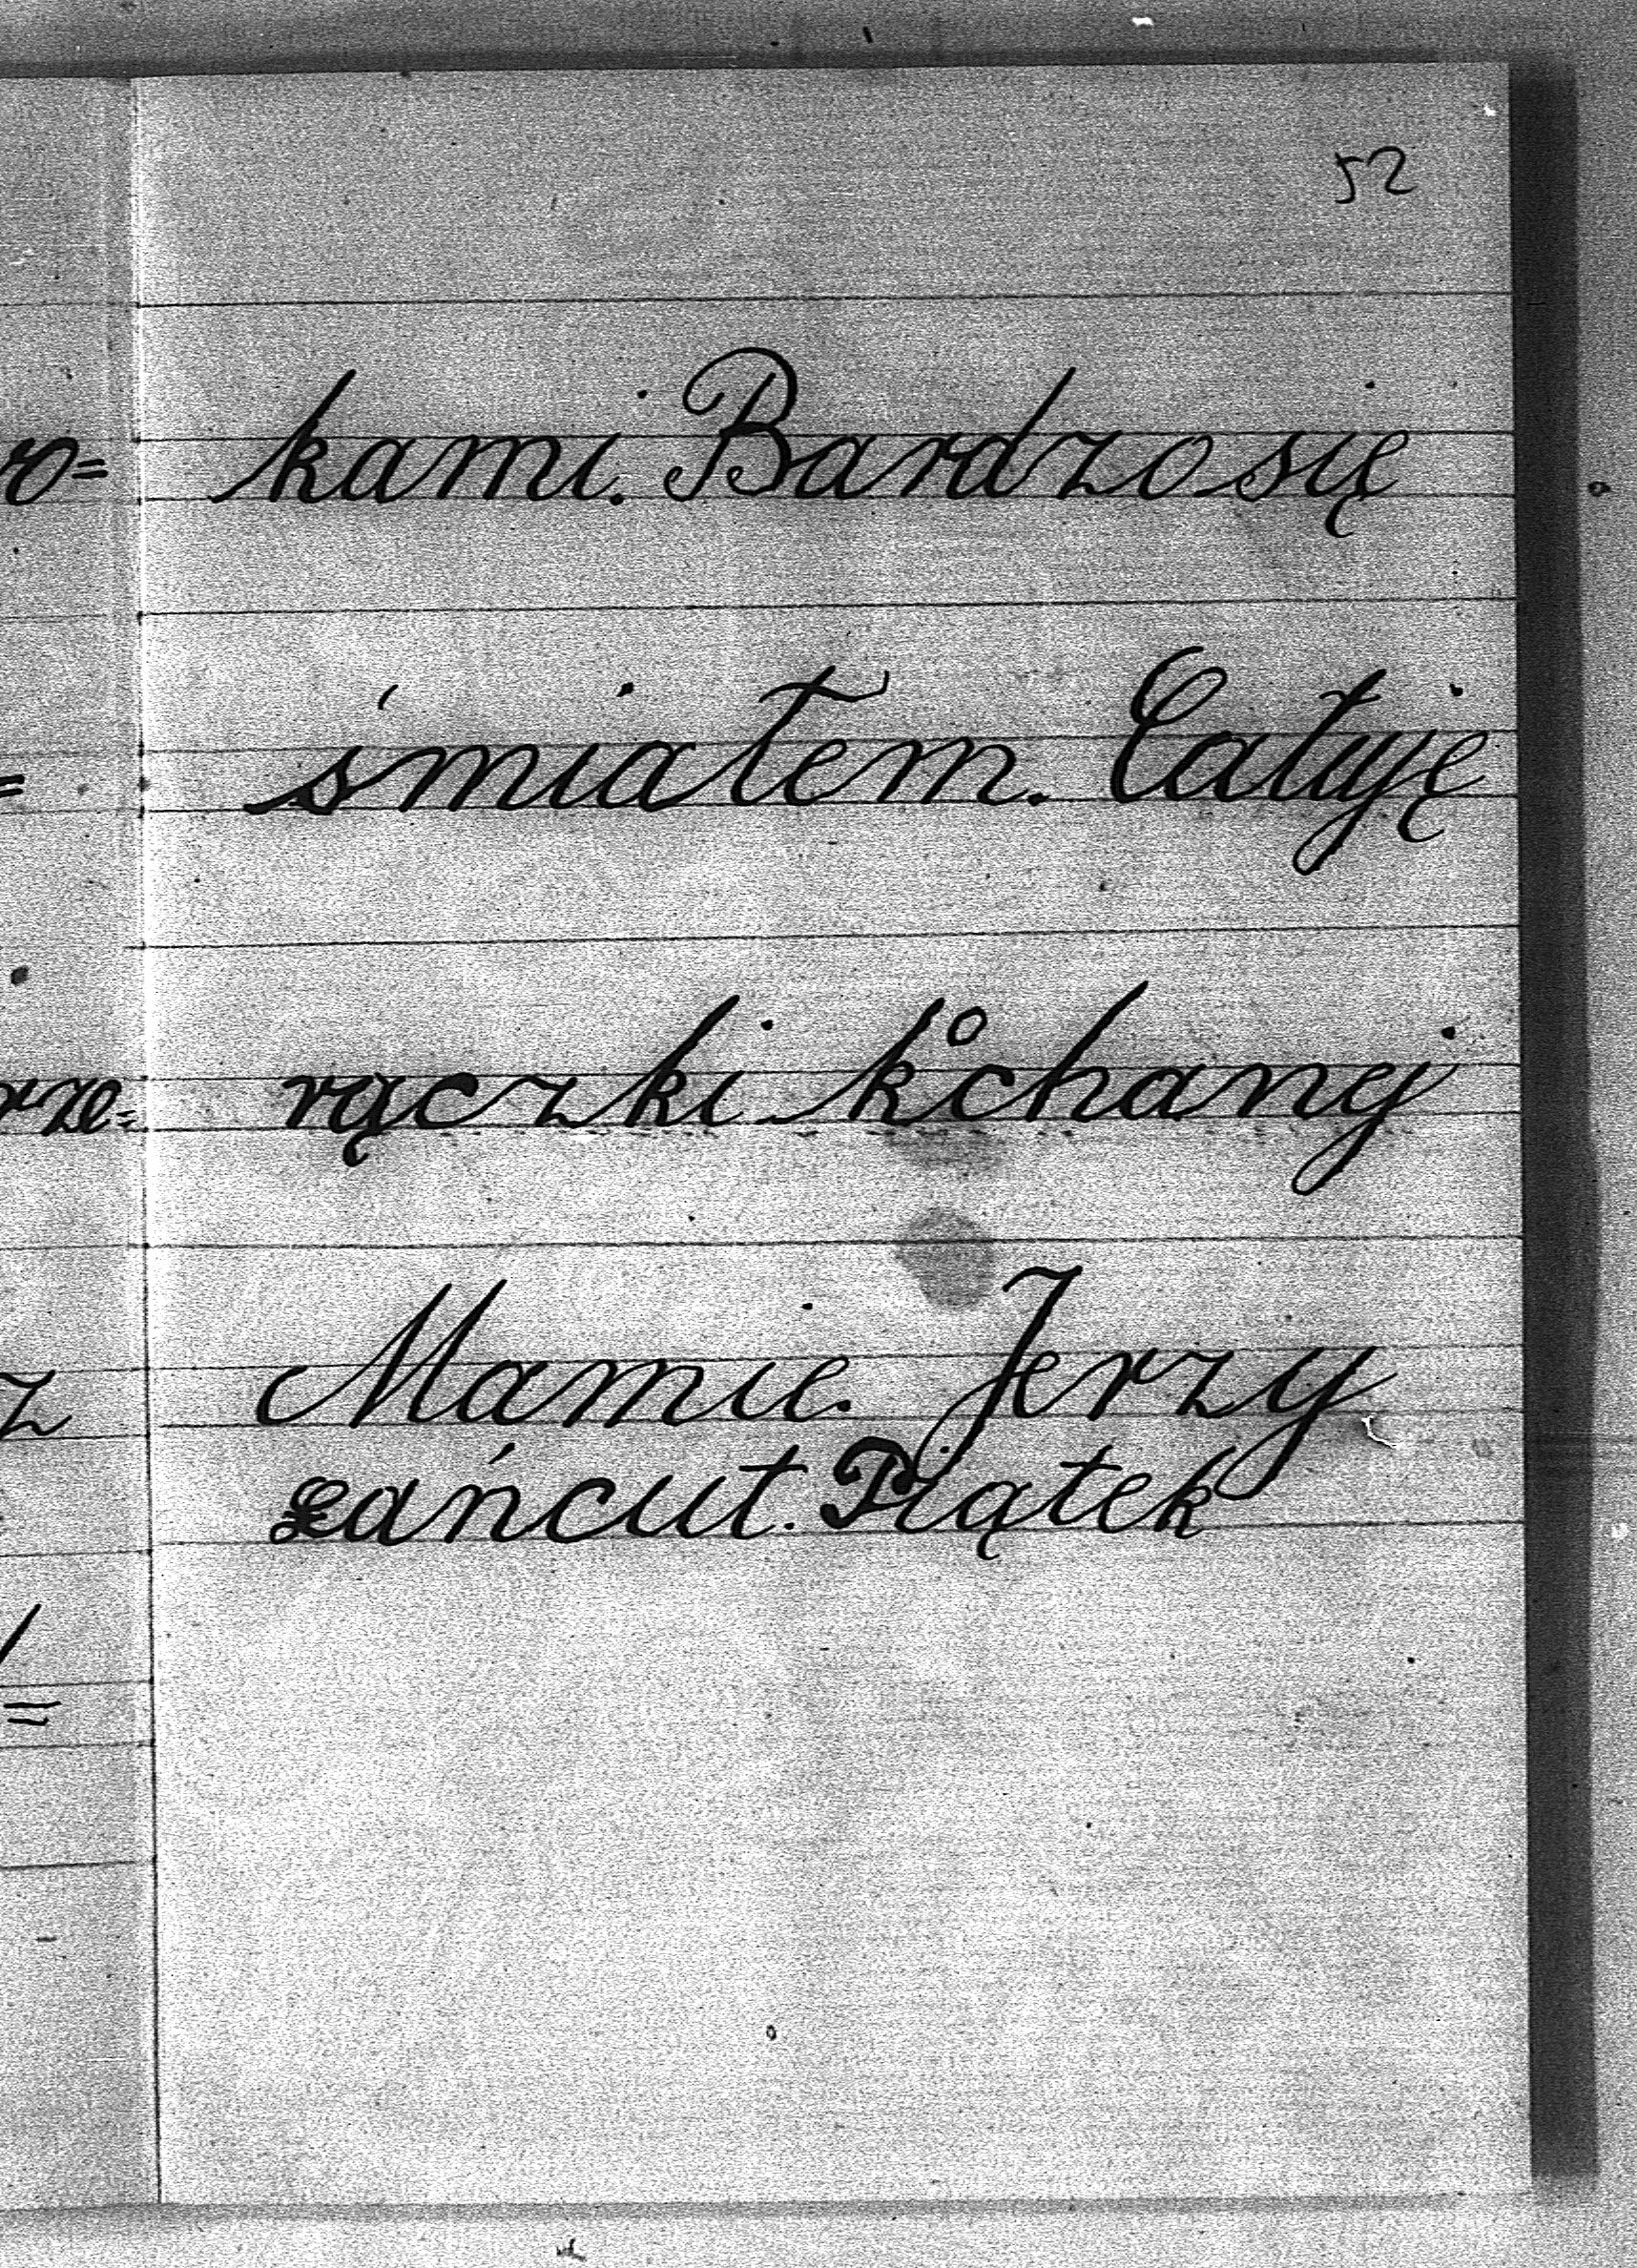 52
kami. Bardzo się
śmiałem. Całuję
rączki kochanej
Mamie. Jerzy
Łańcut. Piątek